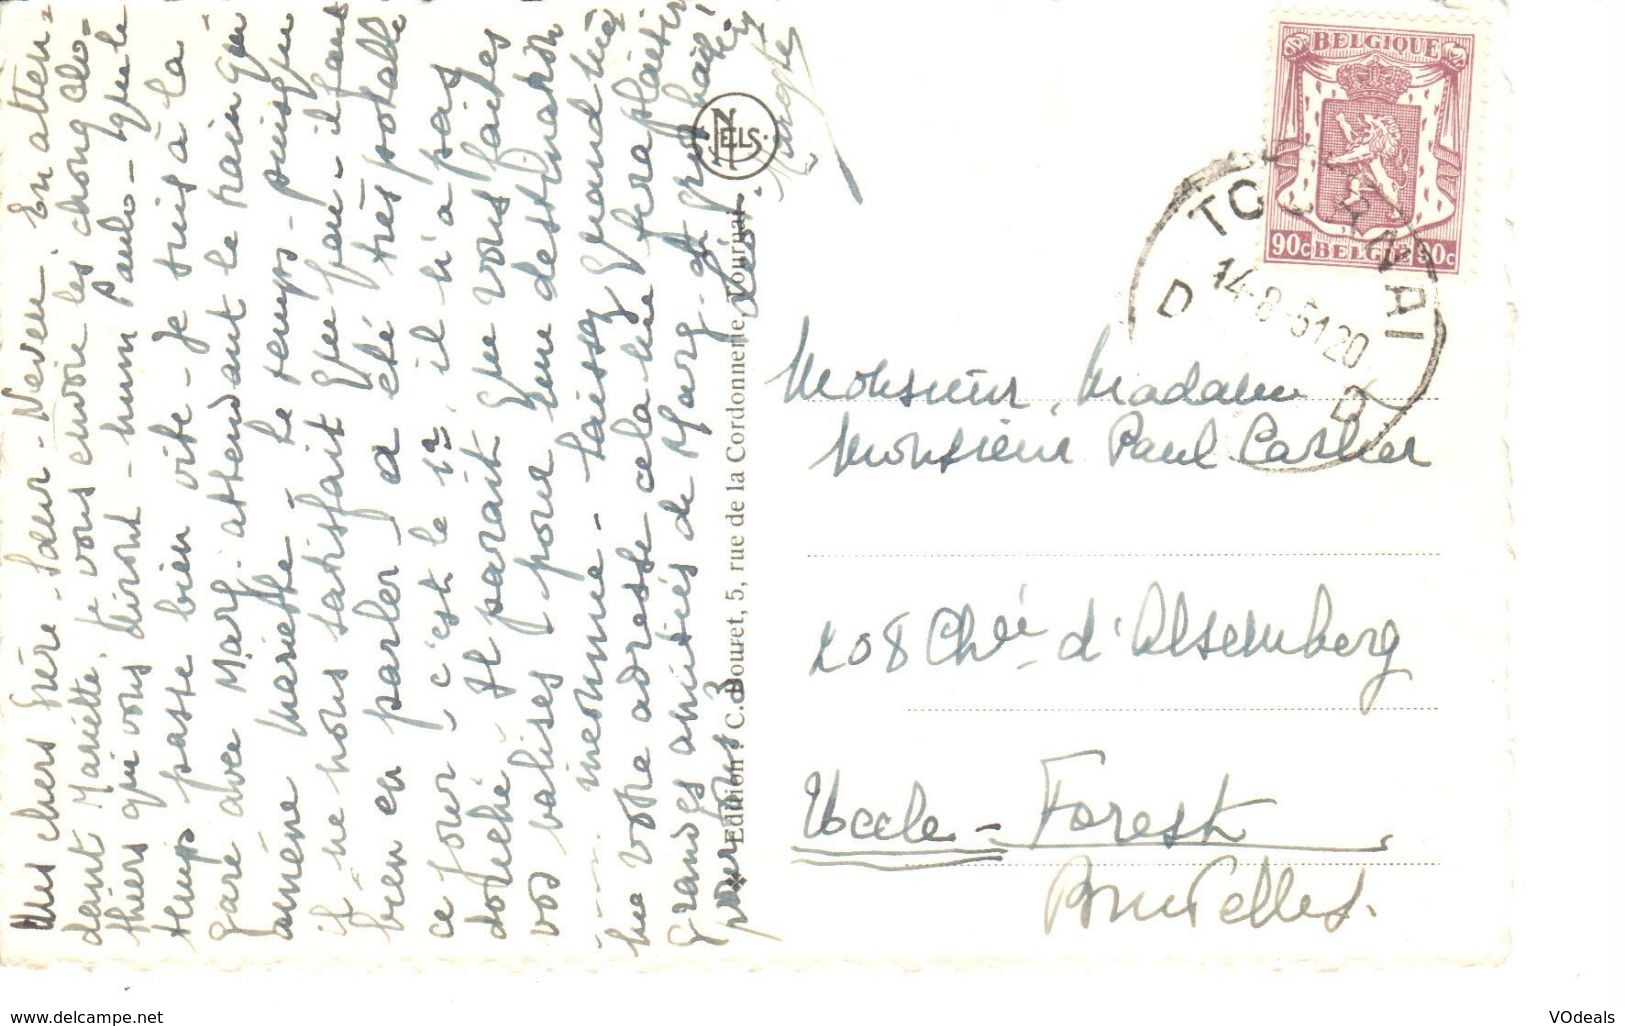 Mes chers frère - Sœur - Neveu. En atten-
dant Mariette, je vous envoie les chong clo-
thiers qui vous diront - hum Paulo - que le
temps passe bien vite - Je suis à la
gare avec Marg. attendant le train qui
amène Mariette. Le temps - puisqu'
il ne nous satisfait que peu - il faut
bien en parler, a été très potable
ce jour, c'est le 1er, il n'a pas
douché. Il paraît que vous faites
vos valises pour une destination
inconnue - Laissez quand même
votre adresse cela me fera plaisir
Grandes amitiés de Marg. et
pour vous 3
Margte
NELS
Edition : C. Douret, 5, rue de la Cordonnerie, Tournai
BELGIQUE
90c BELGIË 90c
TOURNAI
14-8-51 20
D D
Monsieur, Madame
Monsieur Paul Carlier
208 Chée d'Alsemberg
Uccle - Forest
Bruxelles.
www.delcampe.net
VOdeals